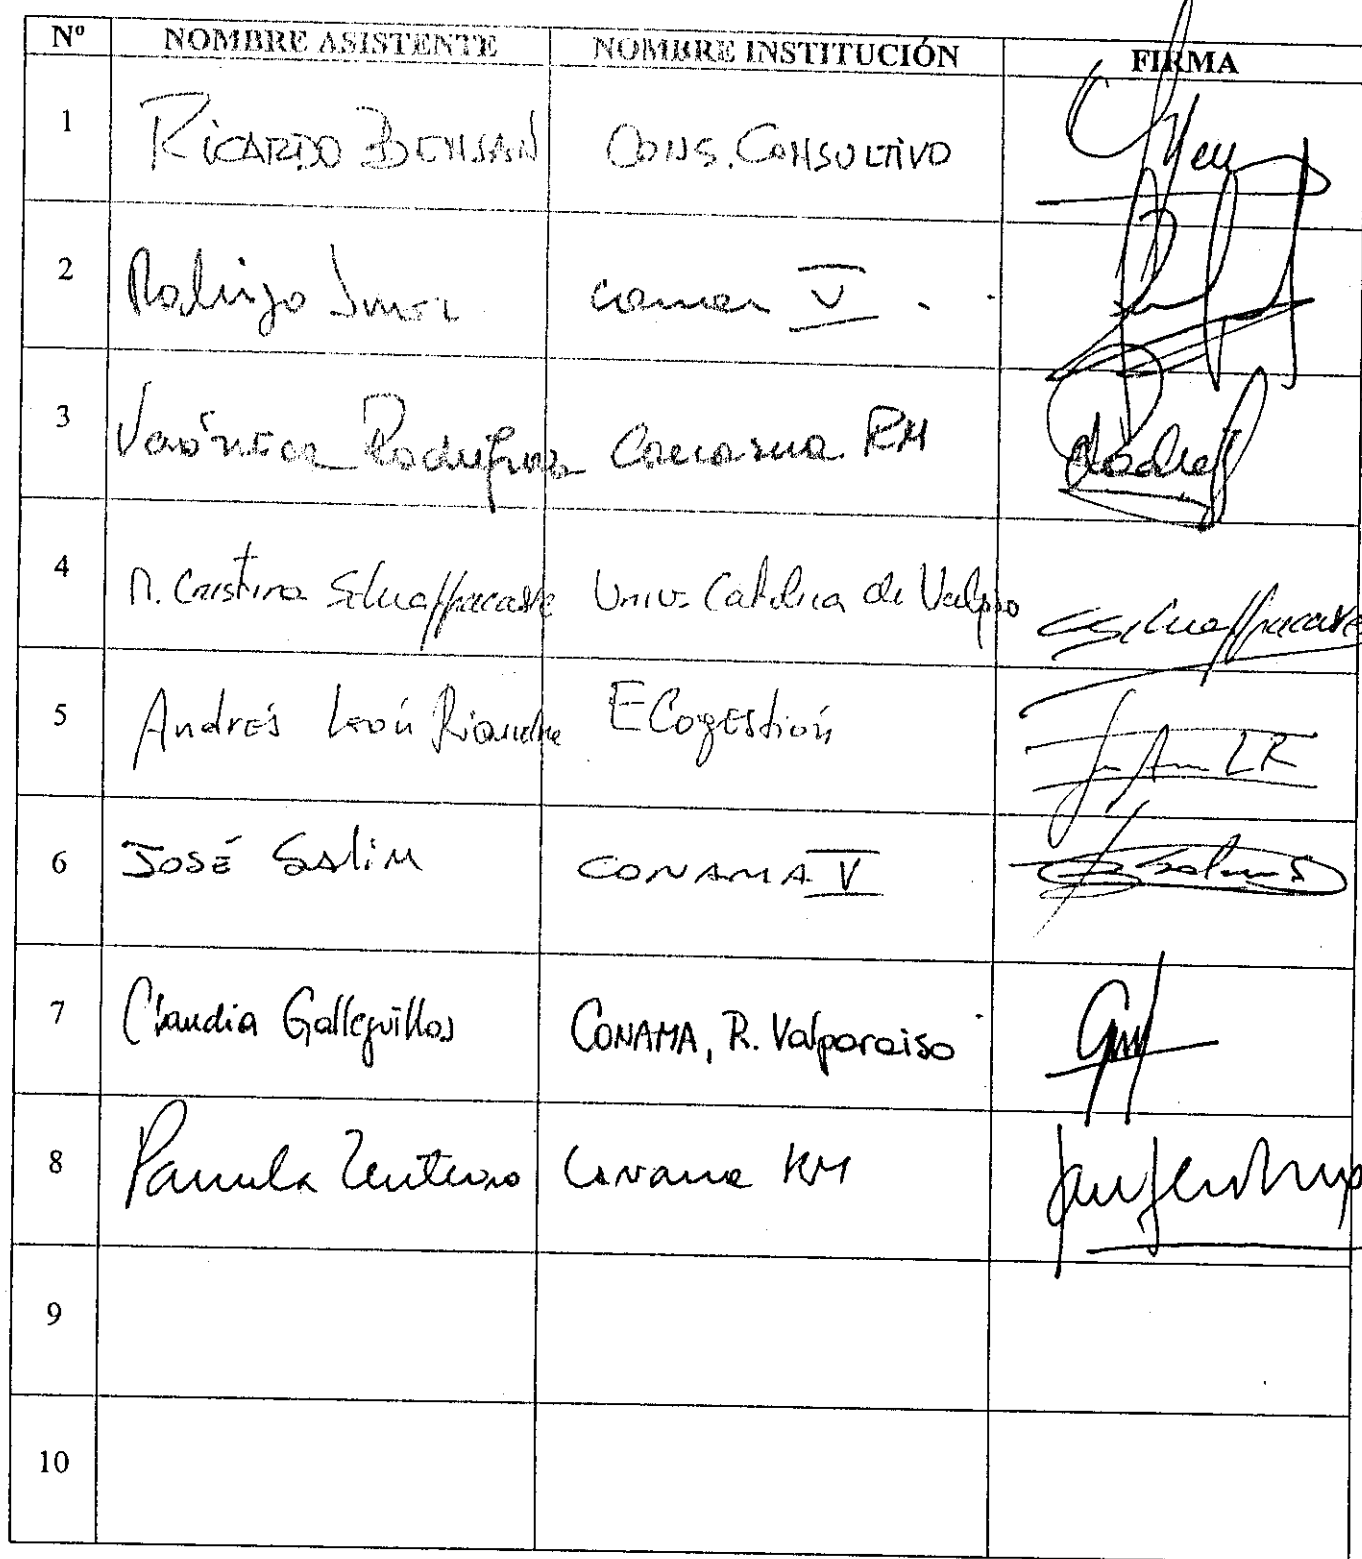 Nº NOMBRE ASISTENTE NOMBRE INSTITUCIÓN FIRMA
1 RICARDO BENSAN CONS. CONSULTIVO
2 Rodrigo V.
3 Verónica Rodríguez RM
4 M. Cristina Schiaffracasse Univ. Católica de Valpso
5 Andrés León ECogestión LR
6 JOSÉ Salim CONAMA V
7 Claudia Galleguillos CONAMA, R. Valparaiso
8 Pamela Zenteno Conama RM
9
10